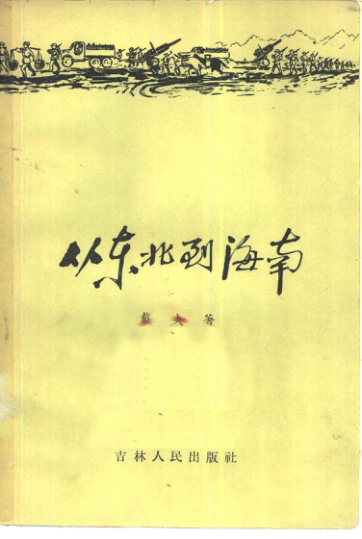 从东北到海南
著
吉林人民出版社